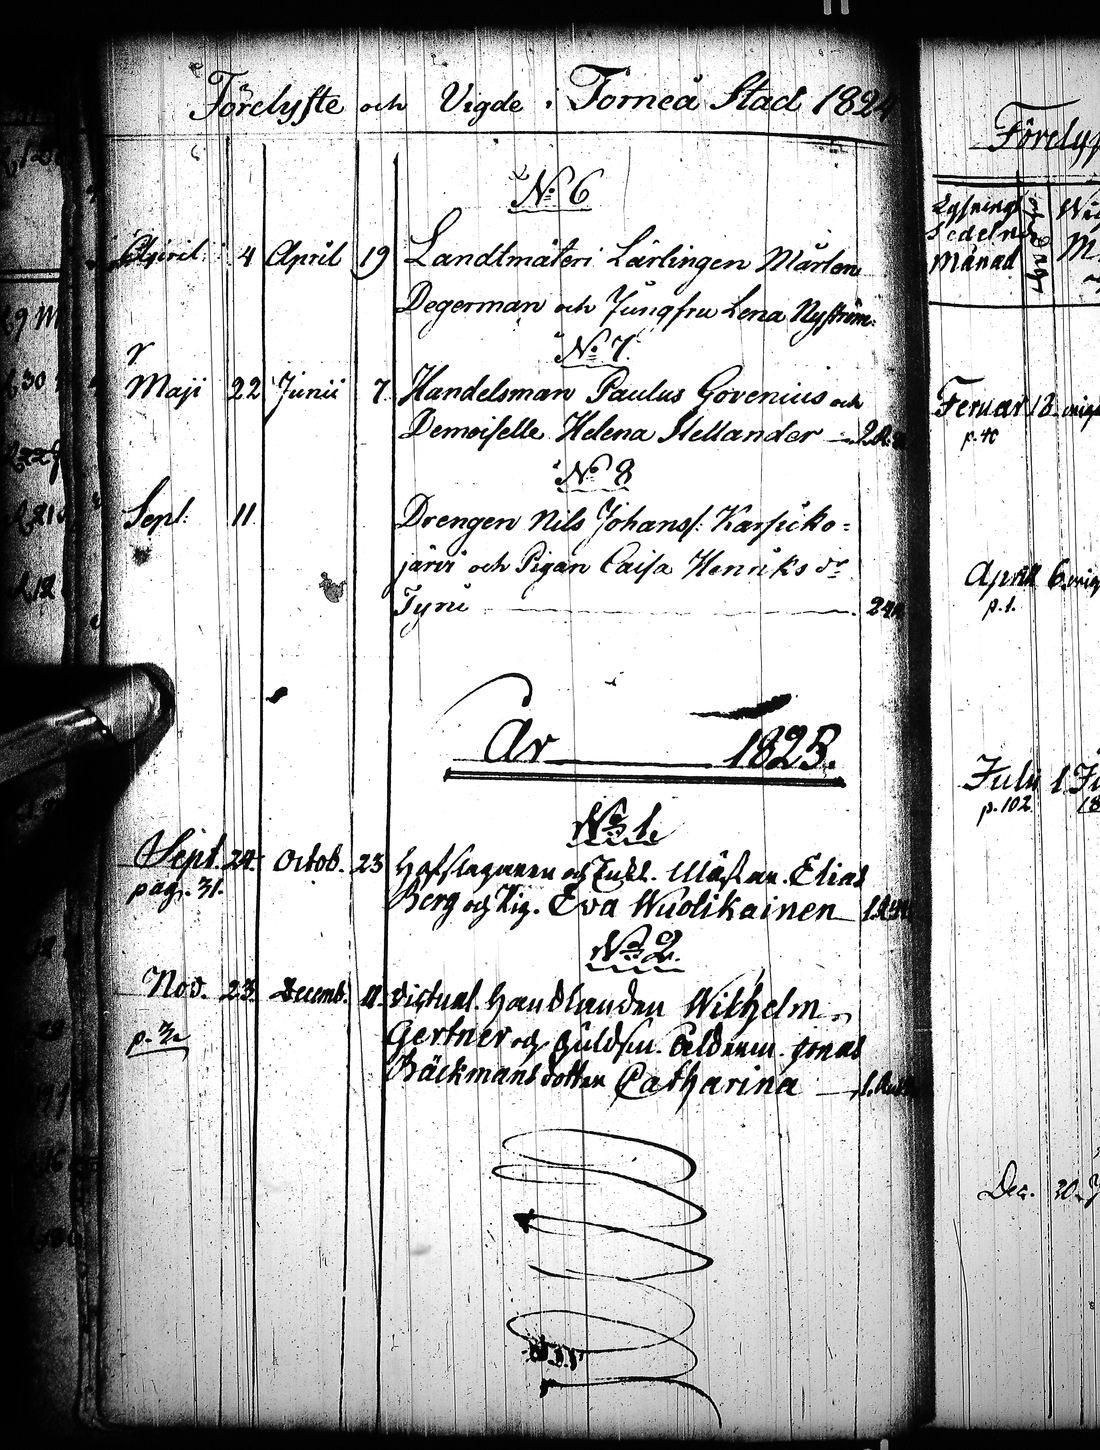 Förelyste och Vigde i Torneå Stad 1824
N:o 6
April 4 April 19 Landtmäteri Lärlingen Mårten
Degerman och Jungfru Lena Nyström
N:o 7
Maji 22 Junii 7 Handelsman Paulus Govenius och
Demoiselle Helena Stellander
N:o 8
Sept: 11 Drengen Nils Johanss: Karsicko=
järvi och Pigan Caisa Henriks dr
Tyni
År 1825.
N:o 1.
Sept. 24. Octob. 23 Elias
pag. 31. Berg och Pig. Eva Wuolikainen
N:o 2.
Nov. 23. Decemb. 11. Victual. Handlanden Wilhelm
p. Gertner och Guldsm. Åldermn. Jonas
Bäckmans dotter Catharina
Lysning
Sedelns
Månad
Feruar 13.
p. 40
April 6.
p. 1.
Julii 1
p. 102
Dec. 30.